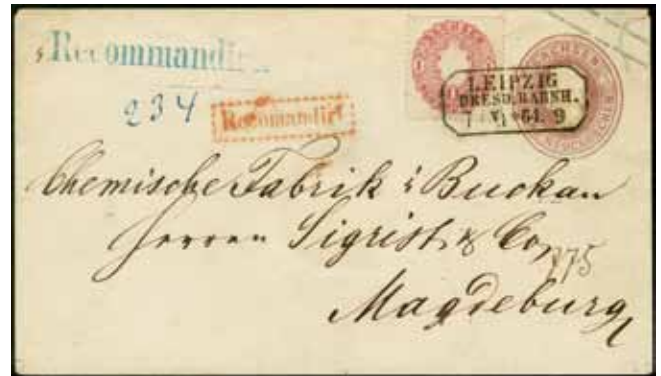 Recommandirt
234
Recomandirt
SACHSEN
LEIPZIG
DRESD. BAHNH.
7 VI 64. 9
Chemische Fabrik i Buckau
Herren Sigrist & Co
775
Magdeburg